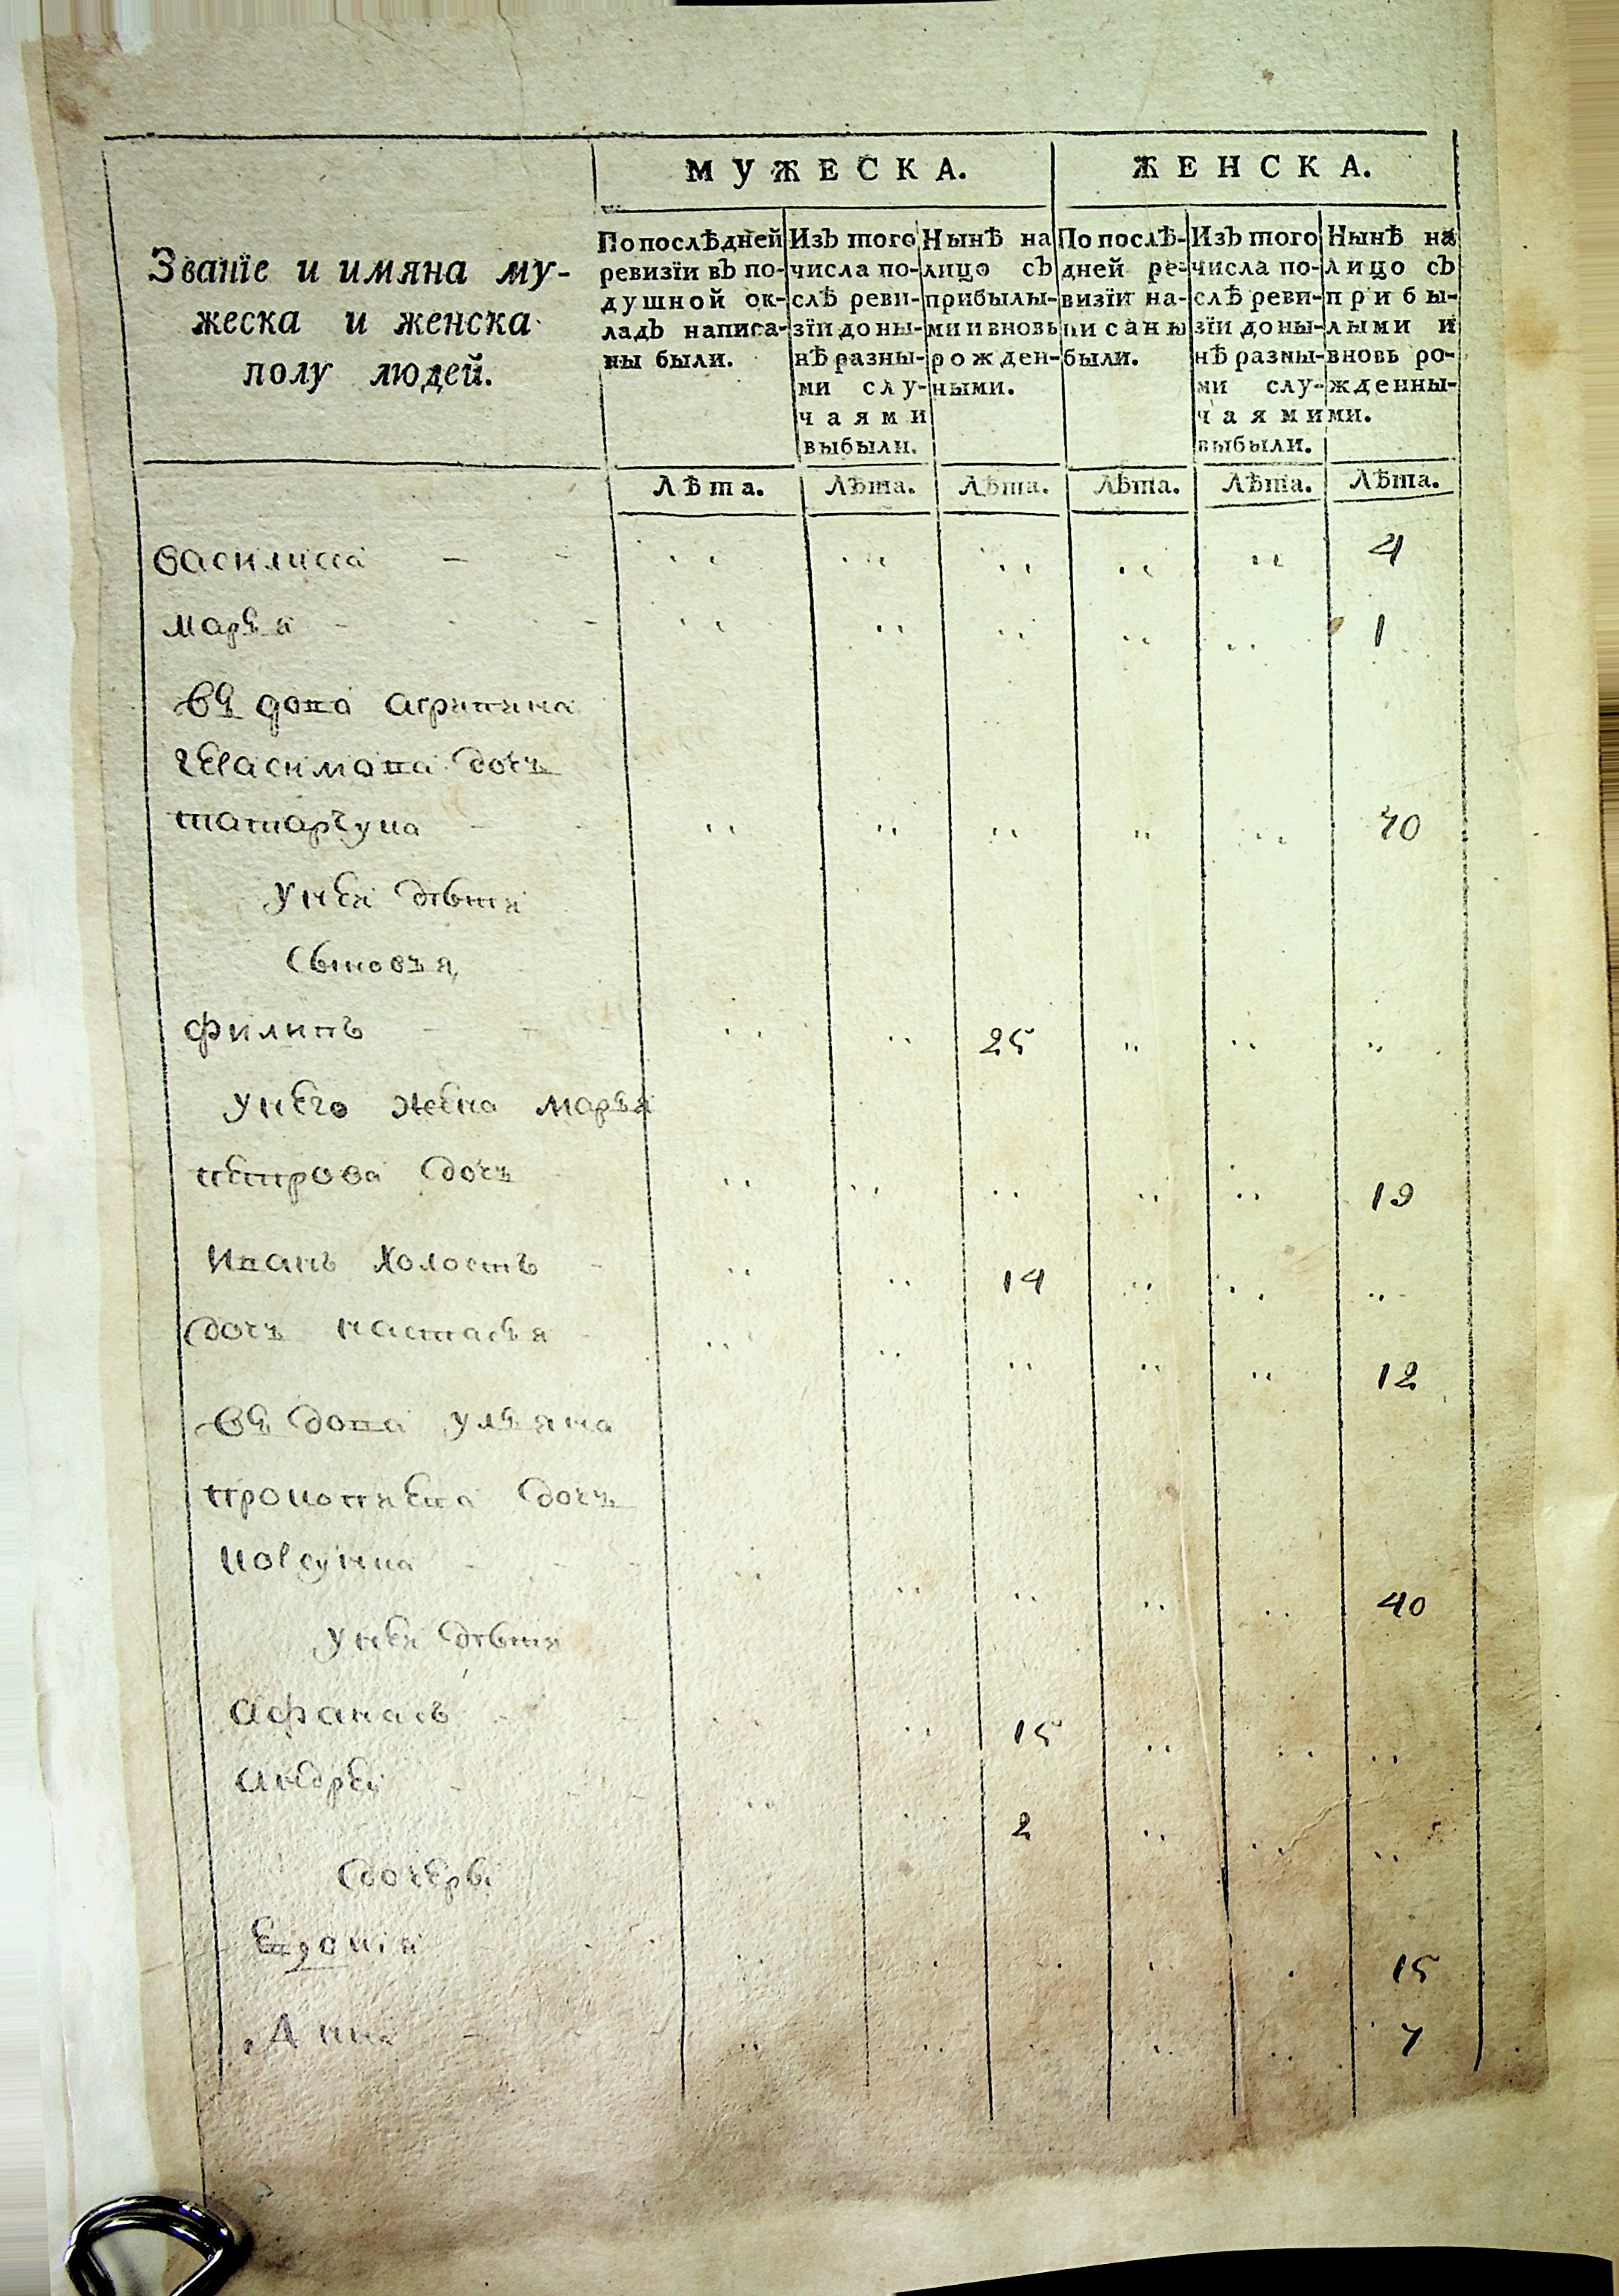 МУЖЕСКА. ЖЕНСКА.
Званїе и имяна му-
жеска и женска
полу людей.
По послѣдней
ревизїи въ по-
душной ок-
ладъ написа-
ны были.
Изъ того
числа по-
слѣ реви-
зїи до ны-
нѣ разны-
ми слу-
чаями
выбыли.
Нынѣ на
лицо съ
прибылы-
ми и вновь
рожден-
ными.
По послѣ-
дней ре-
визїи на-
писаны
были.
Изъ того
числа по-
слѣ реви-
зїи до ны-
нѣ разны-
ми слу-
чаями
выбыли.
Нынѣ на
лицо съ
прибы-
лыми и
вновь ро-
жденны-
ми.
Лѣта. Лѣта. Лѣта. Лѣта. Лѣта. Лѣта.
василиса 4
марья 1
вдова агрипина
герасимова дочь
70
у нея дѣти
сыновья
филипъ 25
у него жена марья
петрова дочь 19
иванъ холостъ 14
дочь настасья 12
вдова ульяна
дочь
40
у нея дѣти
афанасъ 15
андрей 2
дочери
15
Анна 7